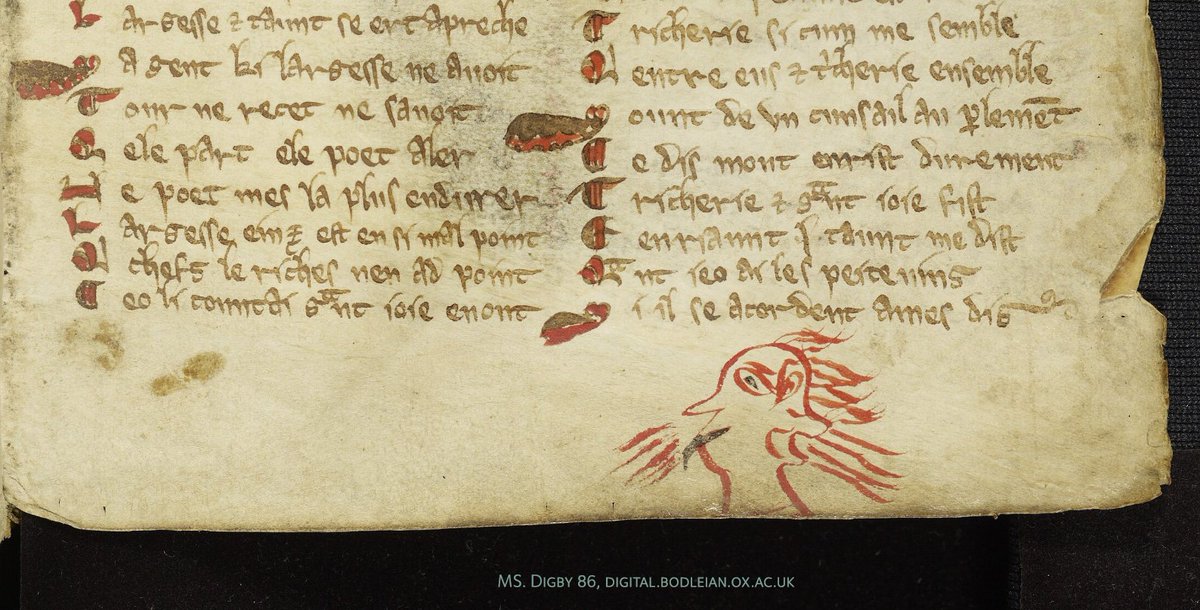 Largesse & taunt se ert apreche
A gent ki largesse ne auoit
Tour ne recet ne sauoit
Qele part ele poet aler
Ne poet mes la plus endurer
Largesse est en si mal point
le riches nen ad point
Ceo li countai gant ioie en ont
Tricherie si cum me semble
Qentre eus & tcherie ensemble
Sount de vn cunsail au plement
Ce dis mout enrist durement
Tricherie & gant ioie fist
En riaunt taunt me dist
Qant ieo ai les peiteuins
Si il se acordent a mes dis
MS. Digby 86, digital.bodleian.ox.ac.uk